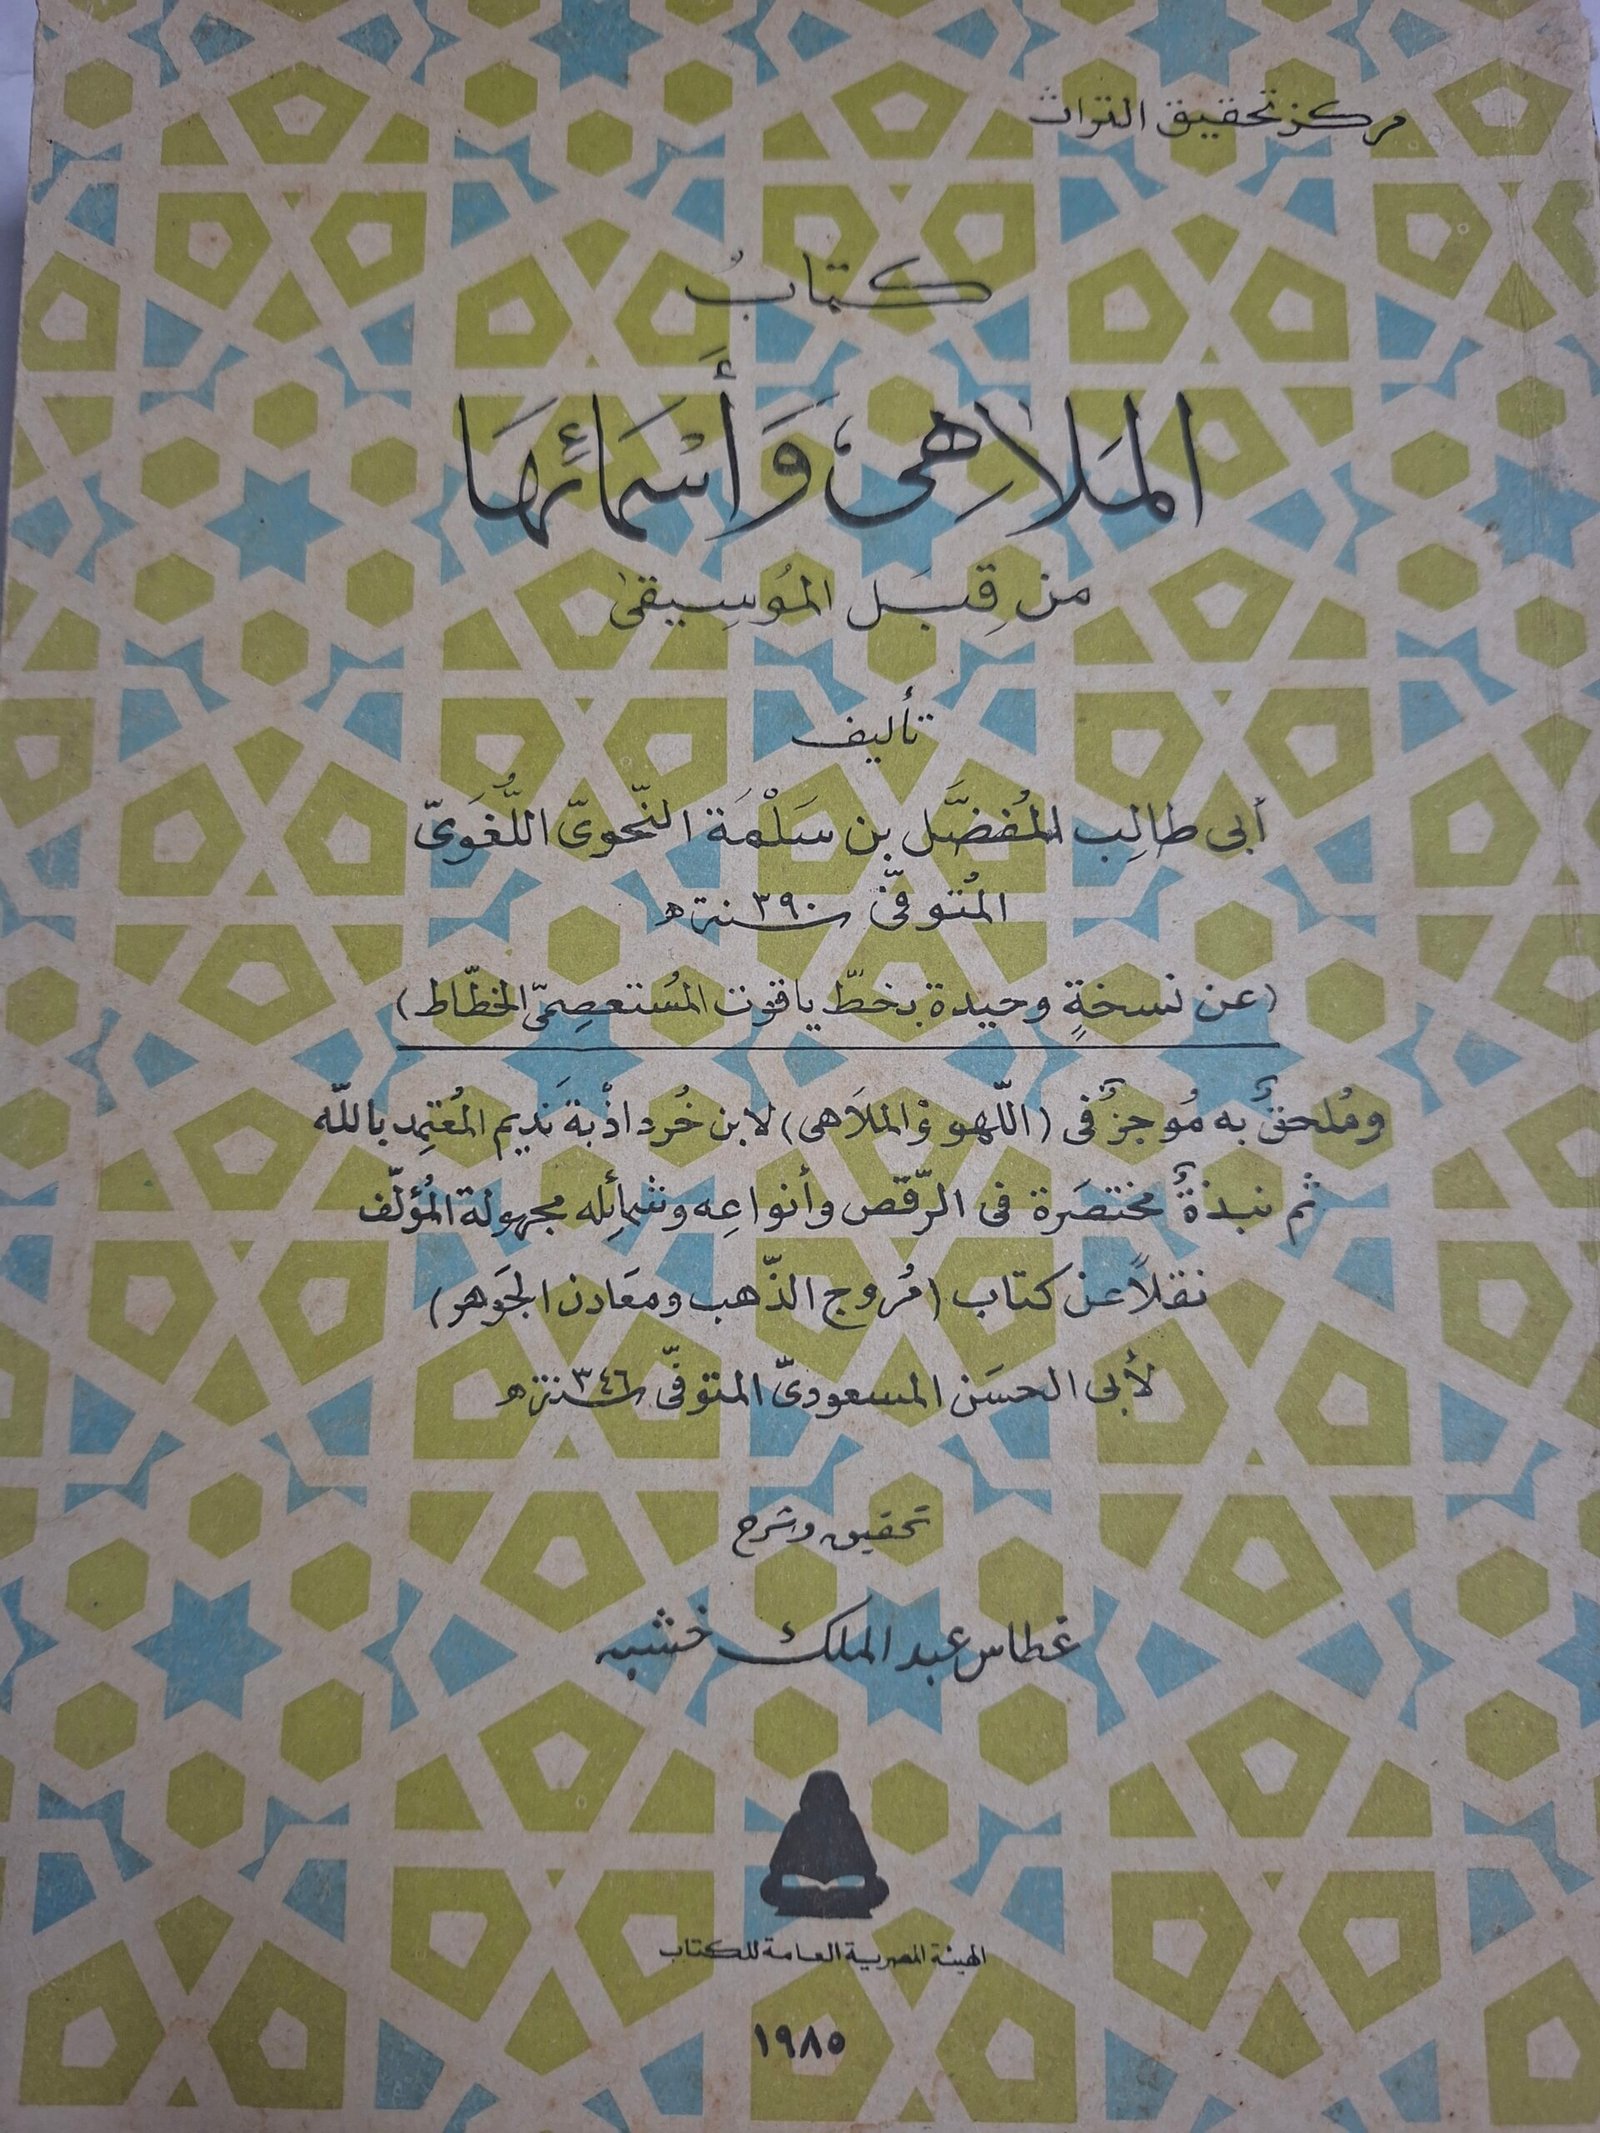 مركز تحقيق التراث
كتابُ
المَلاَهِى، وَأَسْمَائِهَا
من قِبَل المُوسِيقىٰ
تأليف
أبى طالِب المُفضَّل بن سَلْمَة النَّحوىّ اللُّغَوىّ
المُتوفّى سنة ٣٩٠ ه
(عن نسخةٍ وحيدة بخطّ ياقوت المُستعصِمىّ الخطّاط)
ومُلحقٌ به مُوجزٌ فى (اللّهو والملاَهى) لابن خُرداذْبة نَديم المُعتمِد بالله
ثم نبذةٌ مختصَرة فى الرّقص وأنواعِه وشمائِله مجهولة المُؤلّف
نقلاً عن كتاب (مُروج الذّهب ومعَادن الجَوهر)
لأبى الحسَن المسعودىّ المتوفّى سنة ٣٤٦ ه
تحقيق وشرح
غطاس عبد الملك خشبه
الهيئة المصرية العامة للكتاب
١٩٨٥